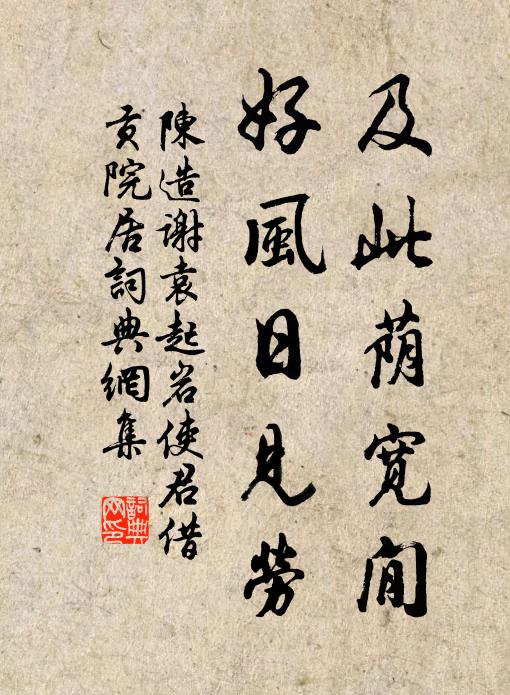 及此荫寛闲
好風日見勞
陳造谢袁起岩使君借
贡院居詞典網集
詞典网印